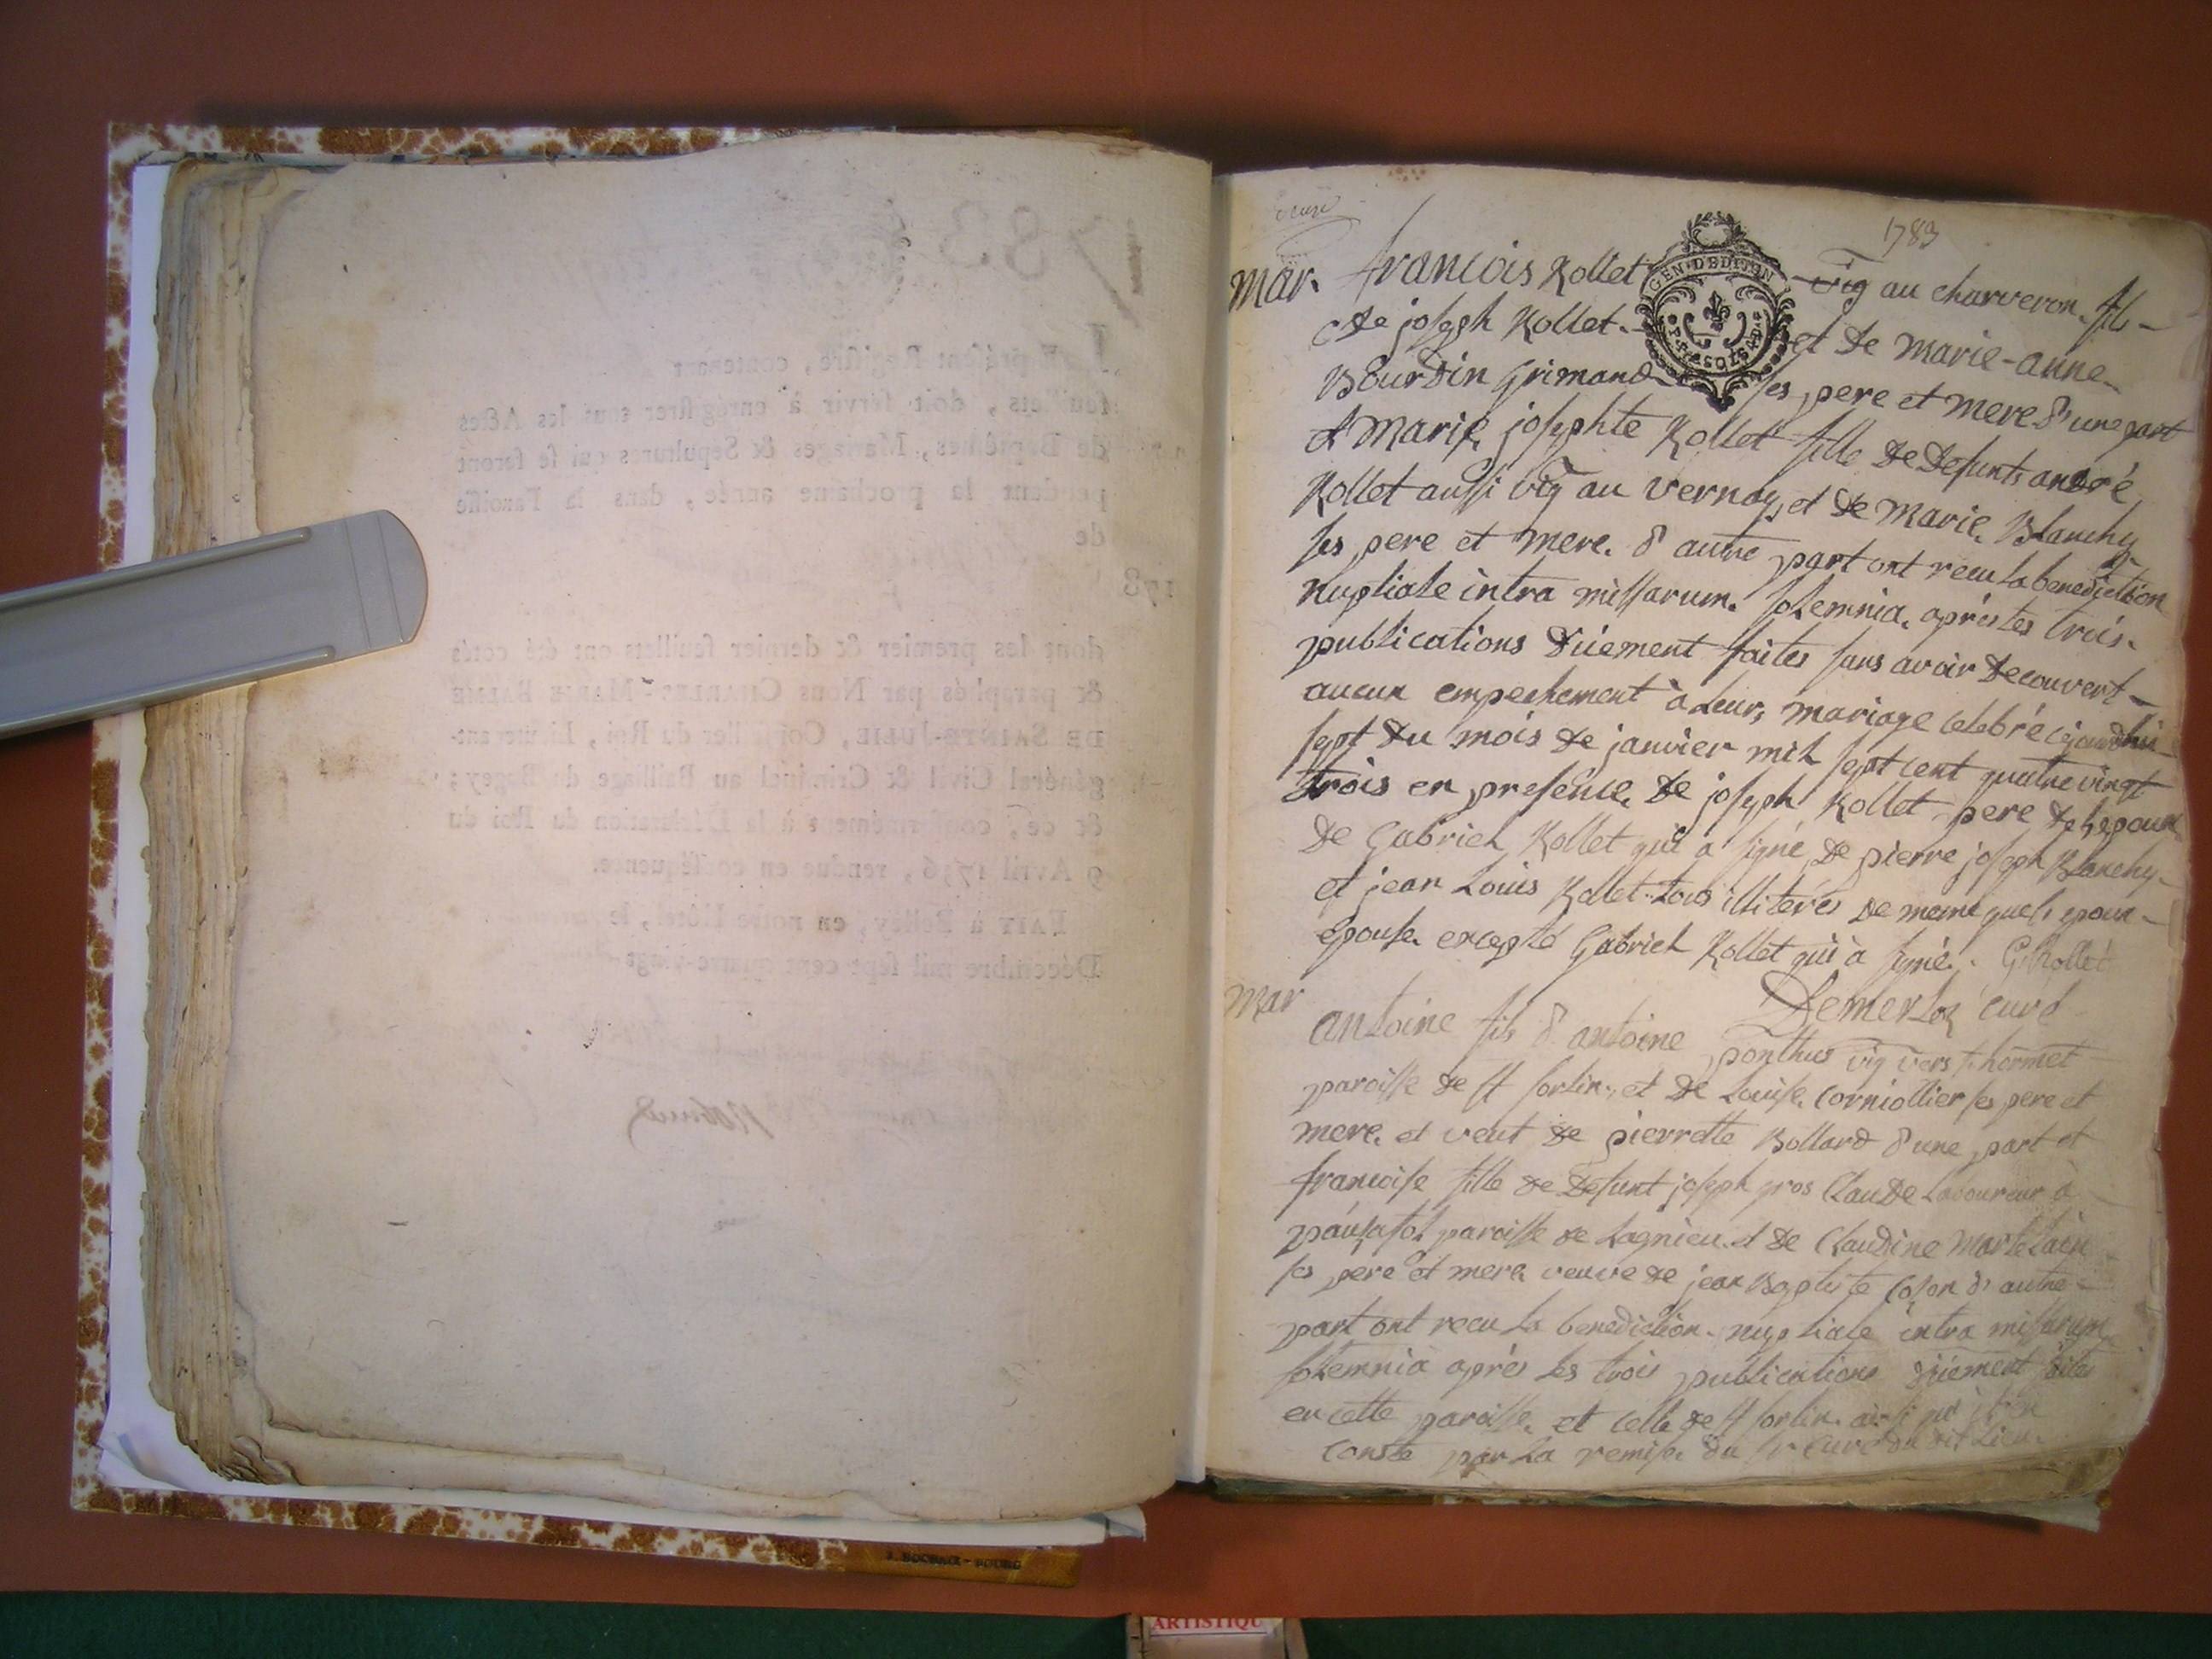 1783
mar. francois Rollet vig au charveron. fils
de joseph Rollet. et de marie-anne
Bourdin Grimand ses pere et mere d'une part
et Marie josephte Rollet fille de defunts andré
Rollet aussi vig au vernay, et de marie Blanchy
ses pere et mere. d'autre part ont recu la benediction
nuptiale intra missarum. solemnia. après les trois.
publications düement faites sans avoir decouvert
aucun empechement à leur mariage celebré cejourdhui
sept du mois de janvier mil sept cent quatre vingt
trois en presence de joseph Rollet pere de l'epoux
de Gabriel Rollet qui a signé, de pierre joseph Blanchy
et jean Louis Rollet tous illiterés de meme que l'epoux
epouse excepté Gabriel Rollet qui à signé. G. Rollet
curé
mar
antoine fils d'antoine ponthus vig vers
paroisse de st sorlin, et de Louise Corniollier ses pere et
mere. et veuf de pierrette Bollard d'une part et
francoise fille de defunt joseph gros Claude Laboureur à
paroisse de Lagnieu. et de Claudine Martelain
ses pere et mere veuve de jean Baptiste d'autre
part ont recu la benediction. nuptiale intra missarum
solemnia après les trois publications düement faites
en cette paroisse. et celle de st sorlin. ainsi
conste par la remise du sr curé du dit Lieu.
GEN. D.
LE present Registre, contenant
feuillets, doit servir à enrégistrer tous les Actes
de Baptêmes, Mariages & Sepultures qui se feront
pendant la prochaine année, dans la Paroisse
de
178
dont les premier & dernier feuillets ont été cotés
& paraphés par Nous CHARLES-MARIE BALME
DE SAINTE-JULIE, Conseiller du Roi, Lieutenant-
général Civil & Criminel au Bailliage du Bugey;
& ce, conformément à la Déclaration du Roi du
9 Avril 1736, rendue en conséquence.
FAIT à Belley, en notre Hôtel, le
Décembre mil sept cent quatre-vingt
ARTISTIQU